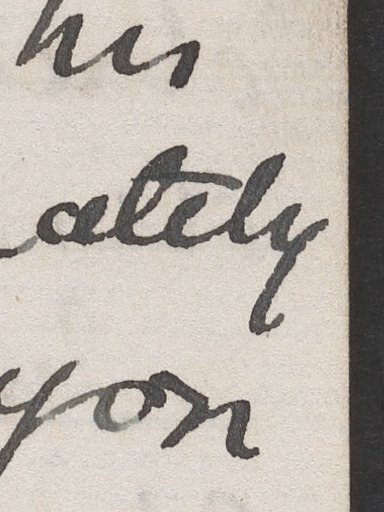 his
ately
yon